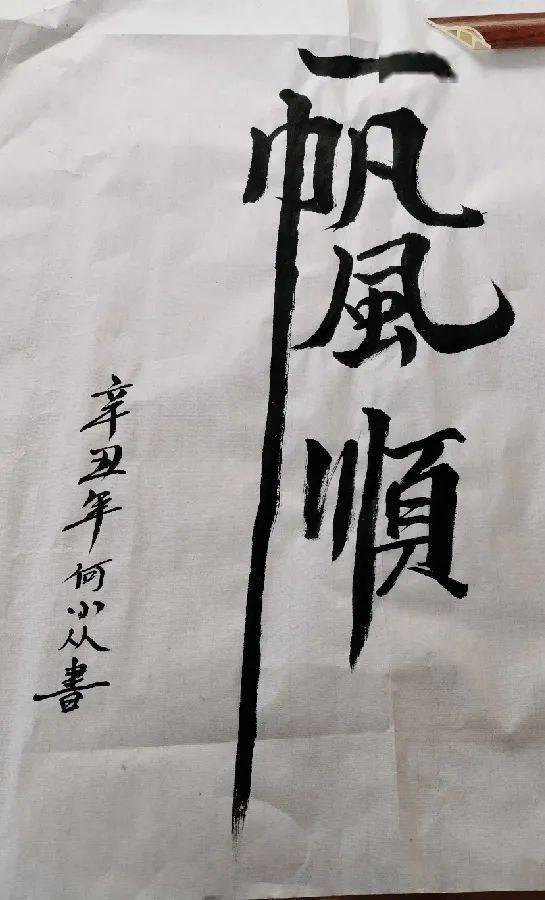 一帆風順
辛丑年何小从書